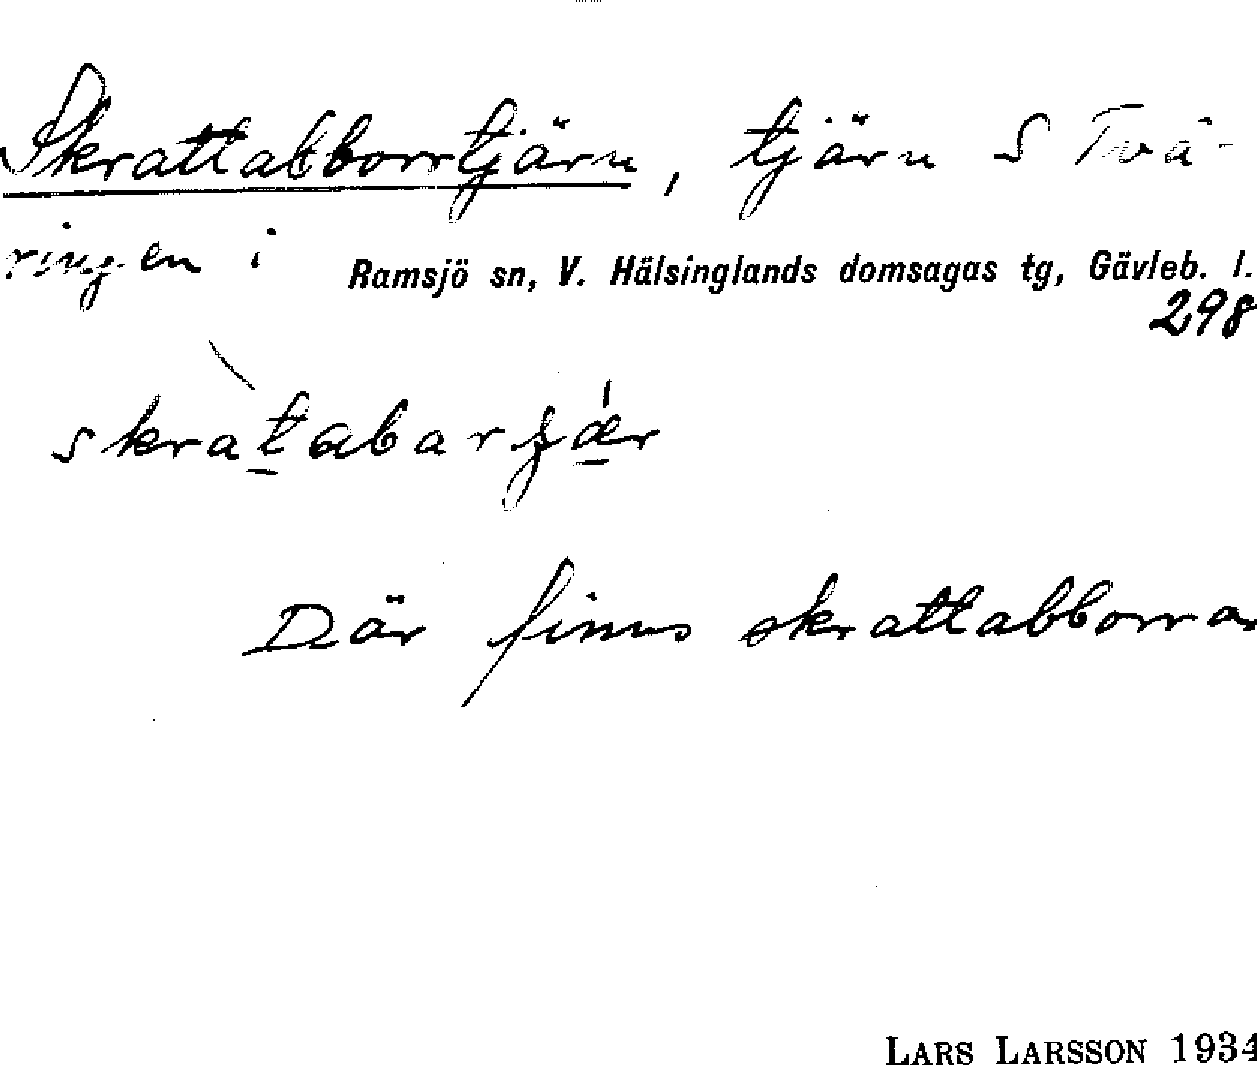 Skrattabborrtjärn, tjärn S Två-
ringen i Ramsjö sn, V. Hälsinglands domsagas tg, Gävleb. l.
298
Där finns skrattabborrar
LARS LARSSON 1934